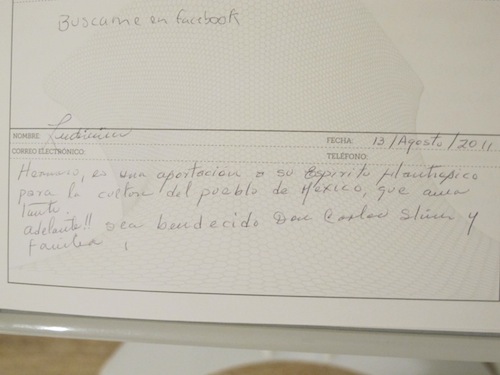 Buscame en facebook
NOMBRE:
FECHA: 13/Agosto/2011
CORREO ELECTRÓNICO:
TELÉFONO:
Hermoso, es una aportacion a su Espiritu filantropico
para la cultura del pueblo de México, que ama
tanto.
adelante!! sea bendecido Don Carlos Slim y
familia